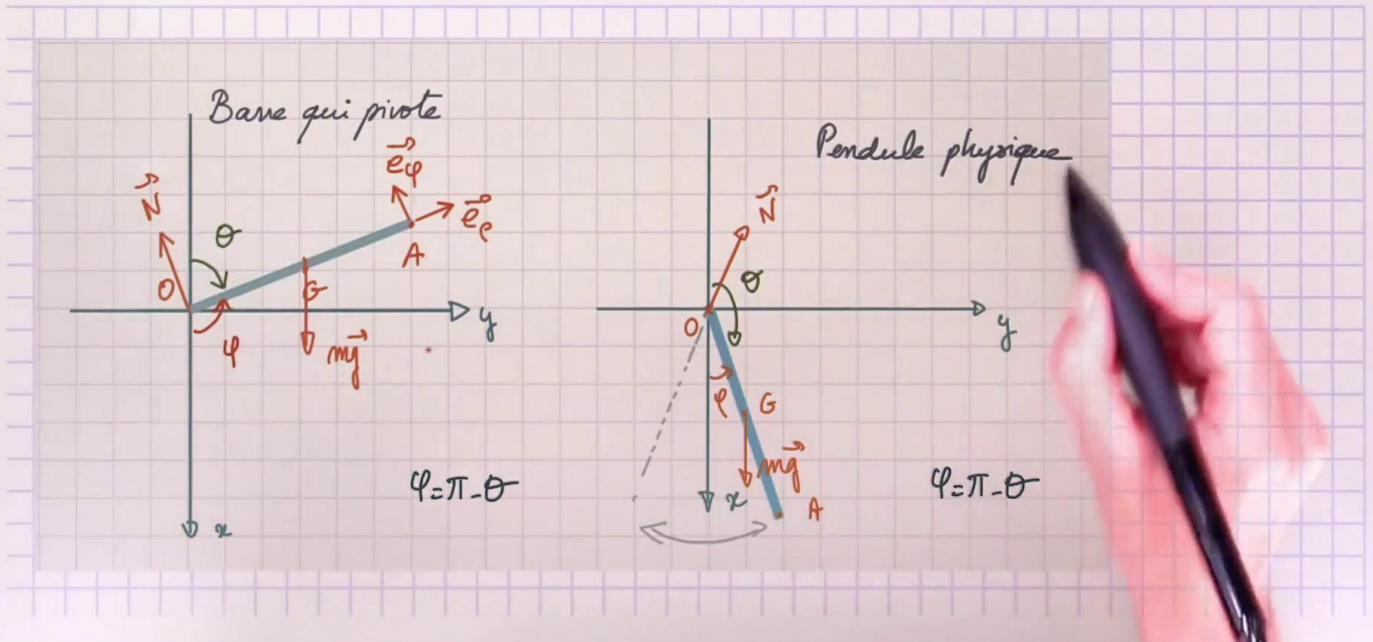 Barre qui pivote
e⃗φ
e⃗ρ
N⃗
θ
A
O
G
y
φ
mg⃗
φ=π-θ
x
Pendule physique
N⃗
θ
O
y
φ
G
mg⃗
x
A
φ=π-θ